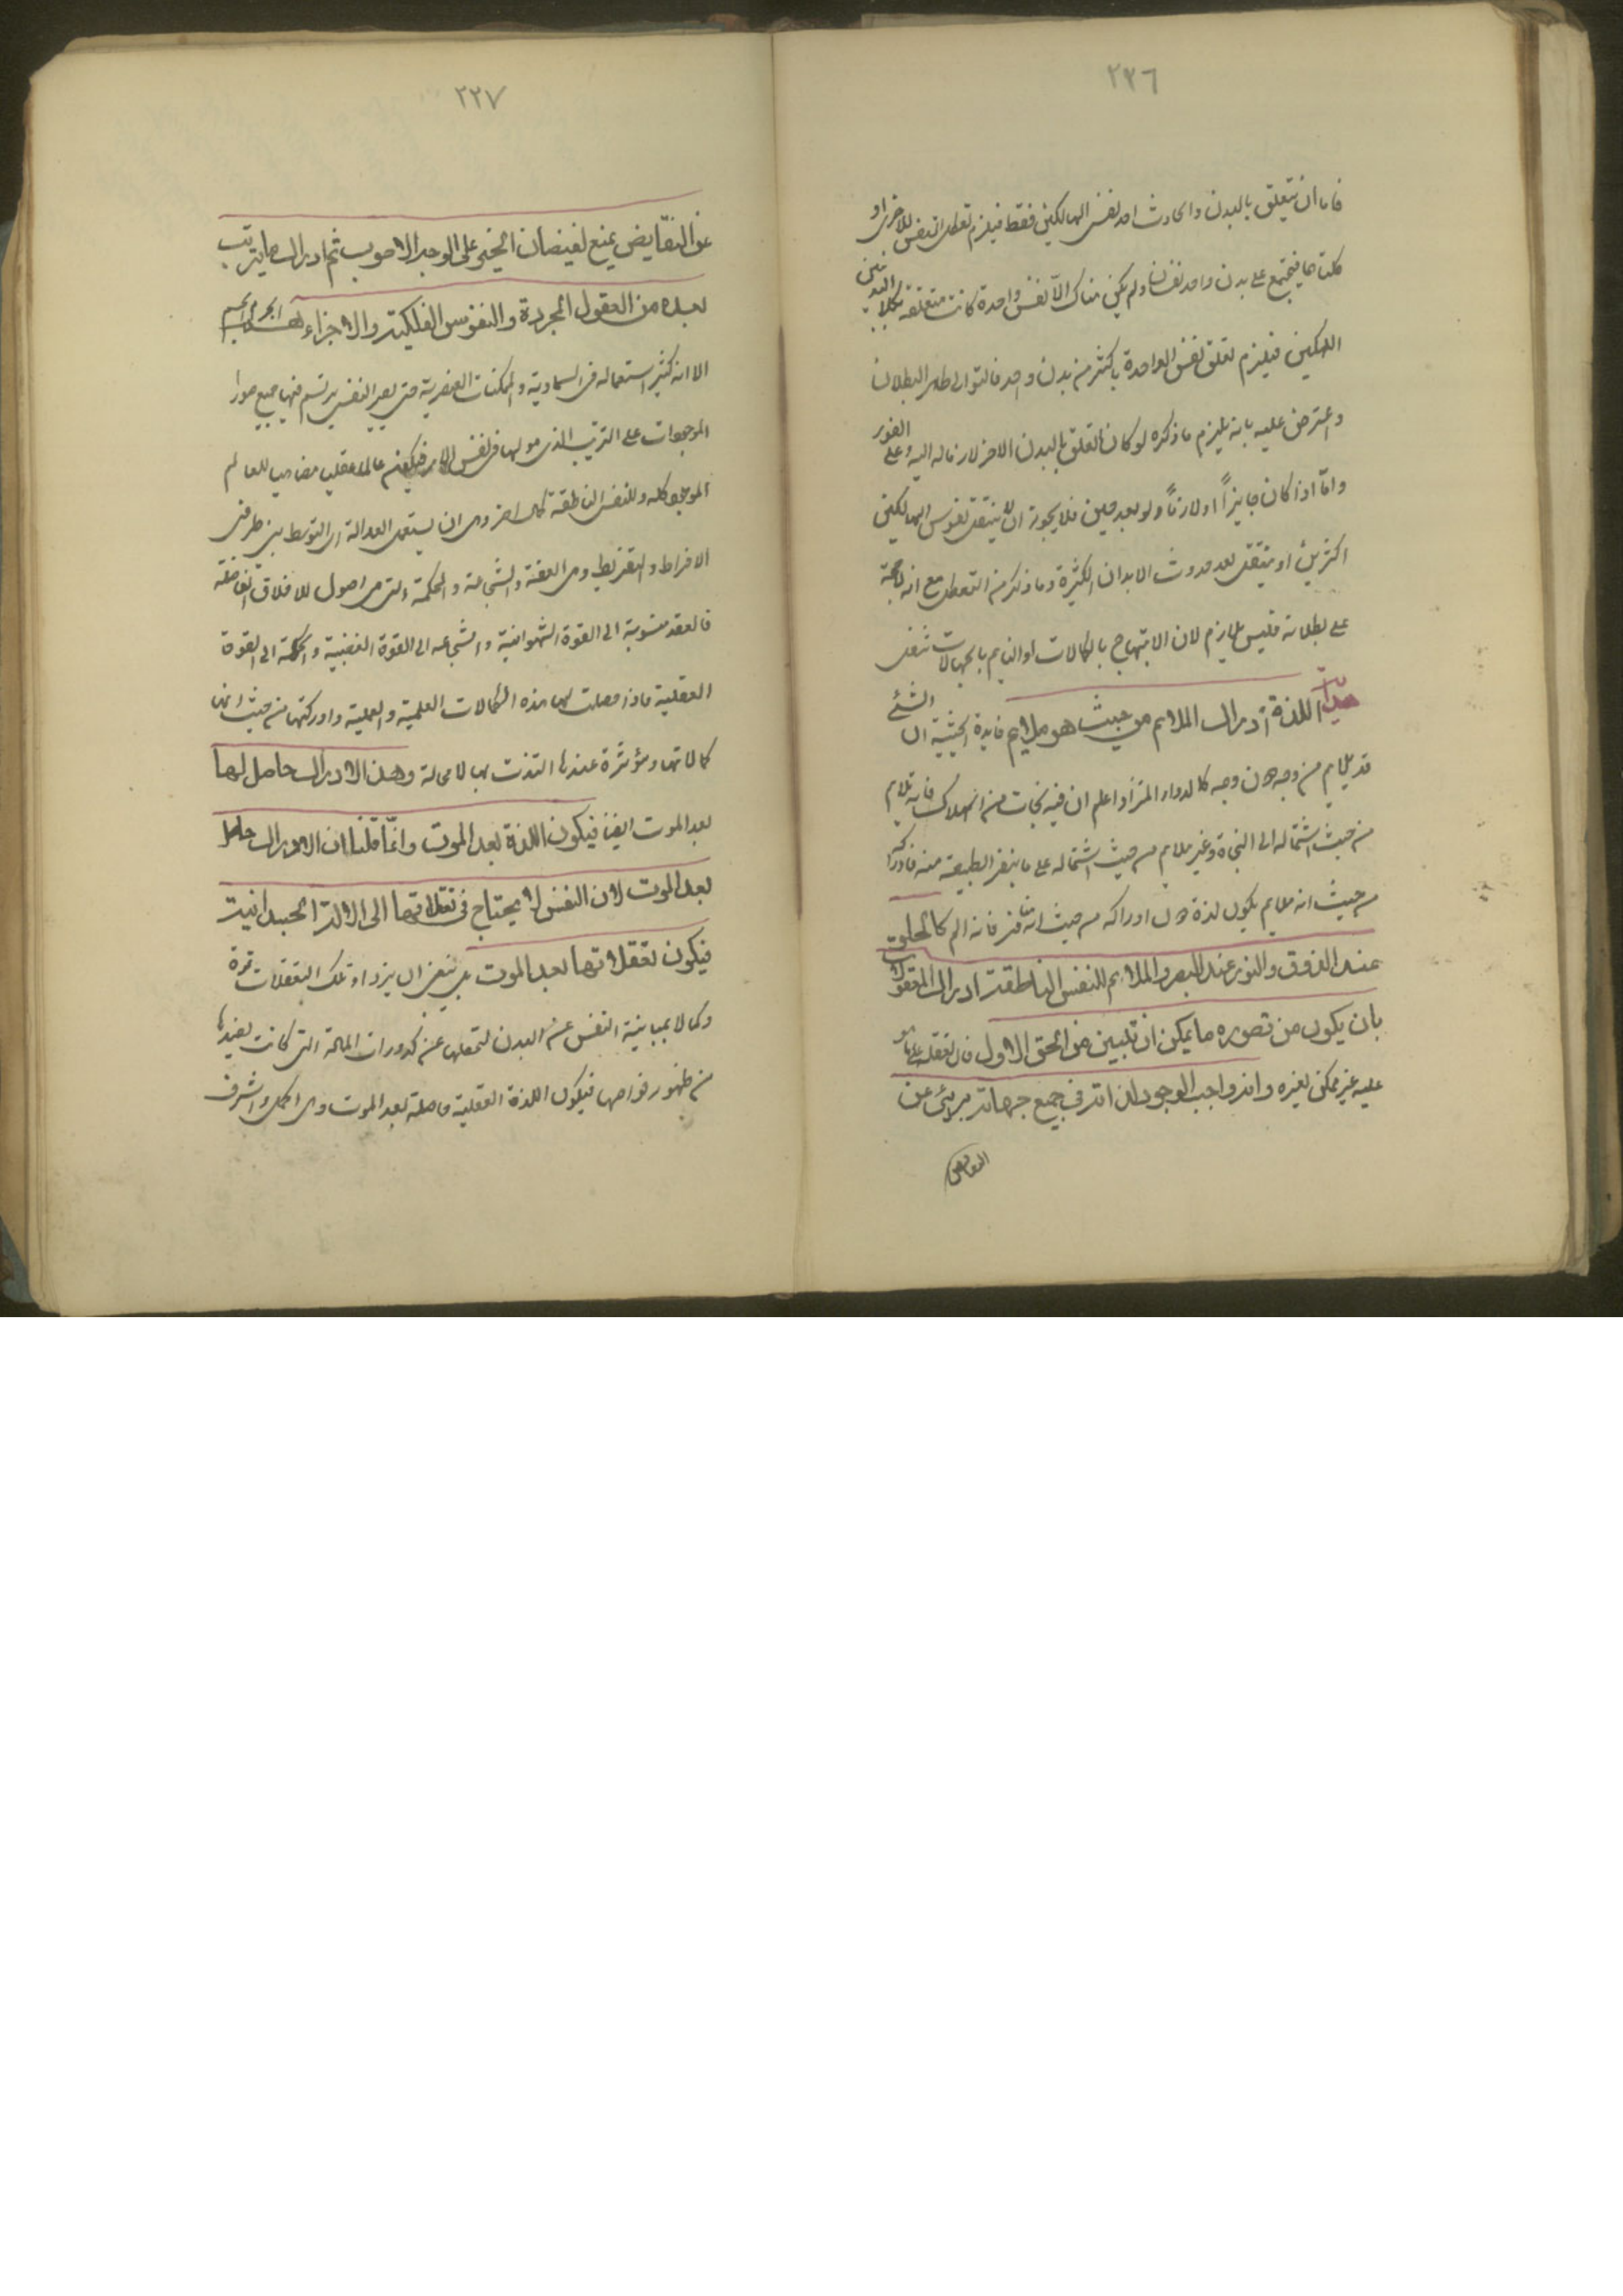 ٢٢٦
فاما ان يتعلق بالبدن الحادث احد نفس الهالكين فقط فيلزم تعطل النفس للاخرى او
كلتاهما فيجتمع على بدن واحد نفسان ولم يكن هناك الا نفس واحدة كانت متعلقة بكلا البدنين
الهالكين فيلزم تعلق نفس الواحدة باكثر من بدن واحد فالتوالي ظاهر البطلان
واعترض عليه بانه يلزم ما ذكره لو كان التعلق بالبدن الاخر لازما له البتة وعلى الفور
واما اذا كان جايزاً او لازماً ولو بعد حين فلا يجوز ان لا ينتقل نفوس الهالكين
اكثرين او ينتقل بعد حدوث الابدان الكثيرة وما ذكر من التعطل مع انه لا حجة
على بطلانه فليس بلازم لان الابتهاج بالكمالات او التالم بالجهالات شغل
هداية اللذة ادراك الملايم من حيث هو ملايم فايدة الحيثية ان الشئ
قد يلايم من وجه دون وجه كالدواء المر اذا علم ان فيه نجات من الهلاك فانه يلايم
من حيث اشتماله الى النجاة وغير ملايم من حيث اشتماله على ما ينفر الطبيعة منه فادراكه
من حيث انه ملايم يكون لذة دون ادراكه من حيث انه منافر فانه الم كالحلو
عند الذوق والنور عند البصر والملايم للنفس الناطقة ادراك المعقولات
بان يكون من تصوره ما يمكن ان تبين من الحق الاول فان تعقله على ما هو
عليه غير ممكن لغيره وانه واجب الوجود لذاته في جميع جهاته برئ عن
النقايص
٢٢٧
عن النقايض يمنع لفيضان الخير على الوجه الاصوب ثم ادراك ما يترتب
بعده من العقول المجردة والنفوس الفلكية والاجزاء الجرم الجسم
الا انه كثر استعماله في السماوية والممكنات العنصرية حتى يصير النفس يرتسم فيها جميع صور
الموجودات على الترتيب الذي هو لها في نفس الامر فيكون عالما عقليا مضاهيا للعالم
الموجود كله وللنفس الناطقة كمال اخر وهي ان يستعمل العدالة اي التوسط بين طرفي
الافراط والتفريط وهي العفة والشجاعة والحكمة التي هي اصول للاخلاق الفاضلة
فالعفة منسوبة الى القوة الشهوانية والشجاعة الى القوة الغضبية والحكمة الى القوة
العقلية فاذا حصلت لها هذه الكمالات العلمية والعملية وادركتها من حيث انها
كمالاتها ومؤثرة عندها التذت بها لا محالة وهذا الادراك حاصل لها
بعد الموت ايضا فيكون اللذة بعد الموت وانما قلنا ان الادراك حاصل
بعد الموت لان النفس لا يحتاج في تعقلاتها الى الالة الجسدانية
فيكون تعقلاتها بعد الموت بل ينبغي ان يزداد تلك التعقلات قوة
وكمالا بمباينة النفس عن البدن لتخليها عن كدورات المادة التي كانت تصدها
من ظهور خواصها فيكون اللذة العقلية حاصلة بعد الموت وهي اكمل واشرف